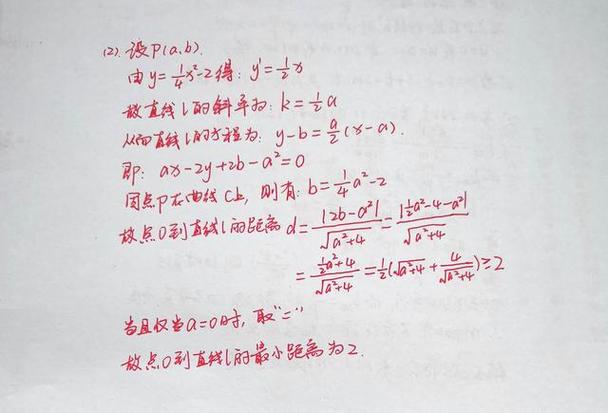 (2). 设P(a,b).
由y=1/4x²-2得: y'=1/2x
故直线l的斜率为: k=1/2a
从而直线l的方程为: y-b=a/2(x-a).
即: ax-2y+2b-a²=0
因点P在曲线C上, 则有: b=1/4a²-2
故点O到直线l的距离d=|2b-a²|/√(a²+4)=|1/2a²-4-a²|/√(a²+4)
=(1/2a²+4)/√(a²+4)=1/2(√(a²+4)+4/√(a²+4))≥2
当且仅当a=0时, 取"="
故点O到直线l的最小距离为2.